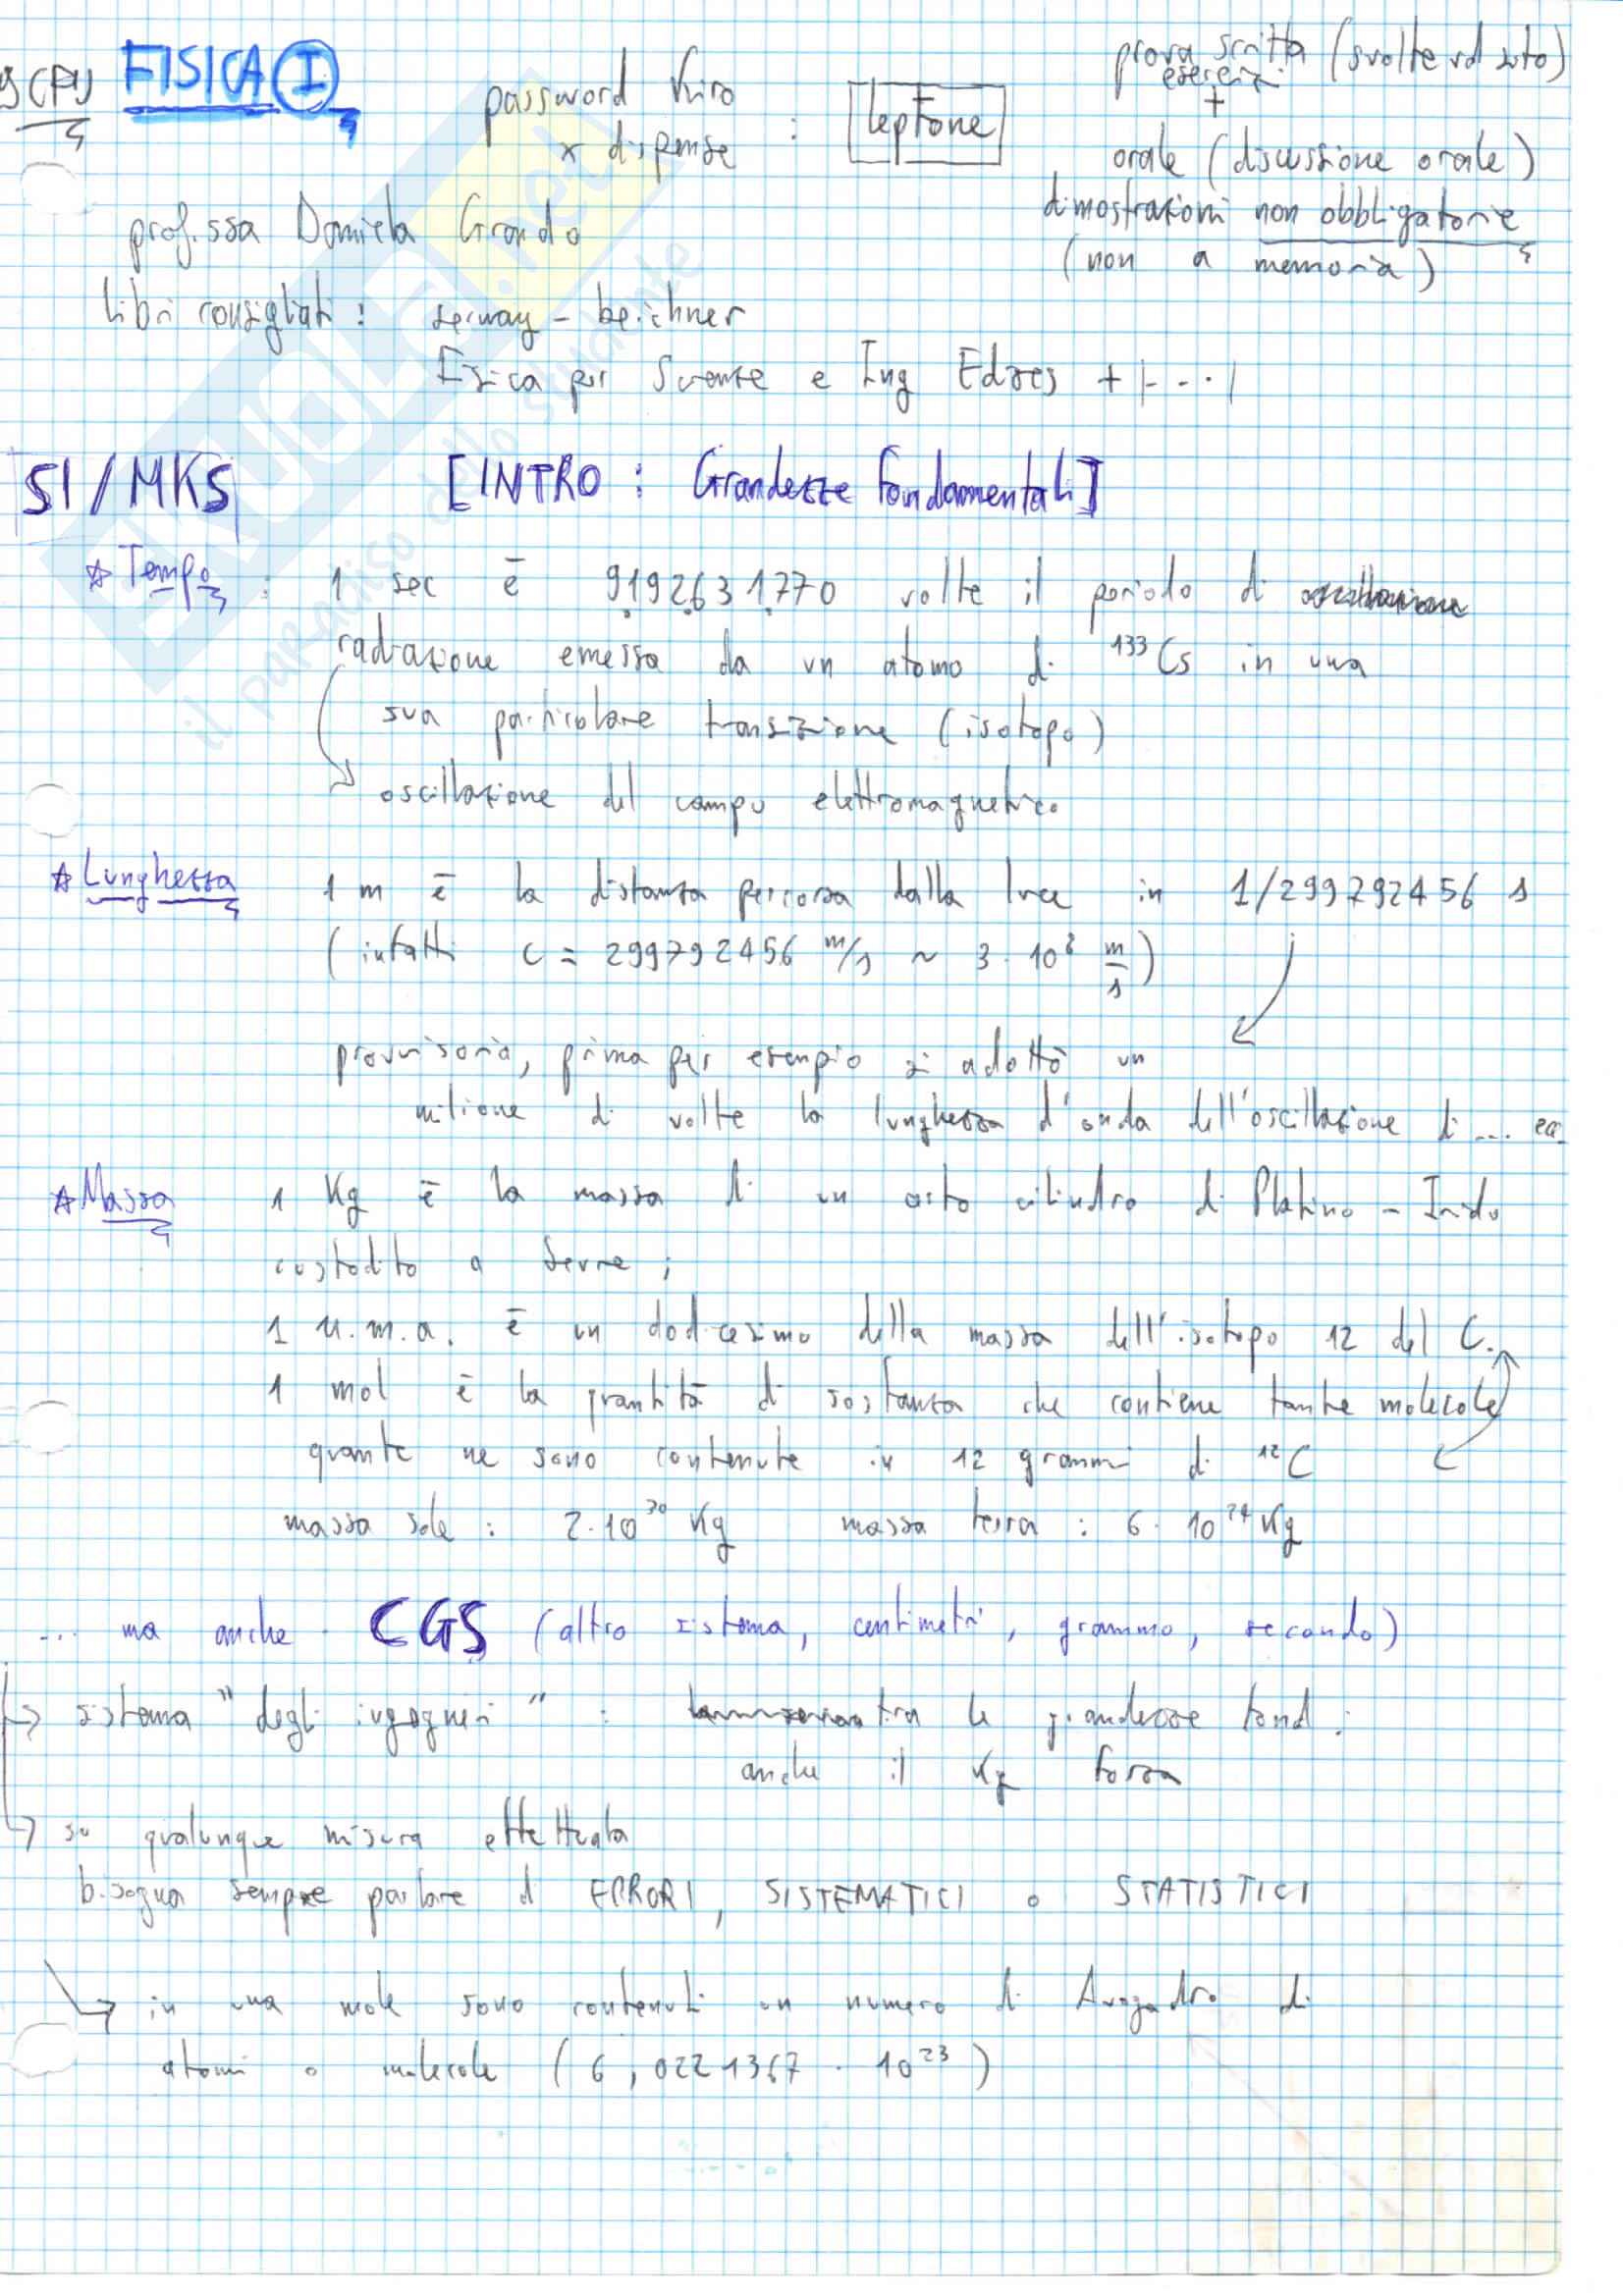 9 CFU FISICA I
password Kiro x dispense : leptone
prova scritta (svolte sul sito)
esercizi
+
orale (discussione orale)
dimostrazioni non obbligatorie
(non a memoria)
prof.ssa Daniela Grando
libri consigliati: serway - beichner
Fisica per Scienze e Ing Edises + |---|
SKUOLA.net
il paradiso dello studente
SI/MKS [INTRO : Grandezze fondamentali]
* Tempo : 1 sec è 9192631770 volte il periodo di
radiazione emessa da un atomo di ¹³³Cs in una
sua particolare transizione (isotopo)
oscillazione del campo elettromagnetico
* Lunghezza 1 m è la distanza percorsa dalla luce in 1/299792456 s
(infatti c = 299792456 m/s ~ 3 · 10⁸ m/s)
provvisoria, prima per esempio si adottò un
milione di volte la lunghezza d'onda dell'oscillazione di ... ecc.
* Massa 1 Kg è la massa di un certo cilindro di Platino - Iridio
custodito a Sevre ;
1 u.m.a. è un dodicesimo della massa dell'isotopo 12 del C.
1 mol è la quantità di sostanza che contiene tante molecole
quante ne sono contenute in 12 grammi di ¹²C
massa sole : 2·10³⁰ Kg massa terra : 6 · 10²⁴ Kg
... ma anche CGS (altro sistema, centimetri, grammo, secondo)
sistema "degli ingegneri" : tra le grandezze fond.
anche il Kg forza
su qualunque misura effettuata
bisogna sempre parlare di ERRORI, SISTEMATICI o STATISTICI
in una mole sono contenuti un numero di Avogadro di
atomi o molecole (6,0221367 · 10²³)